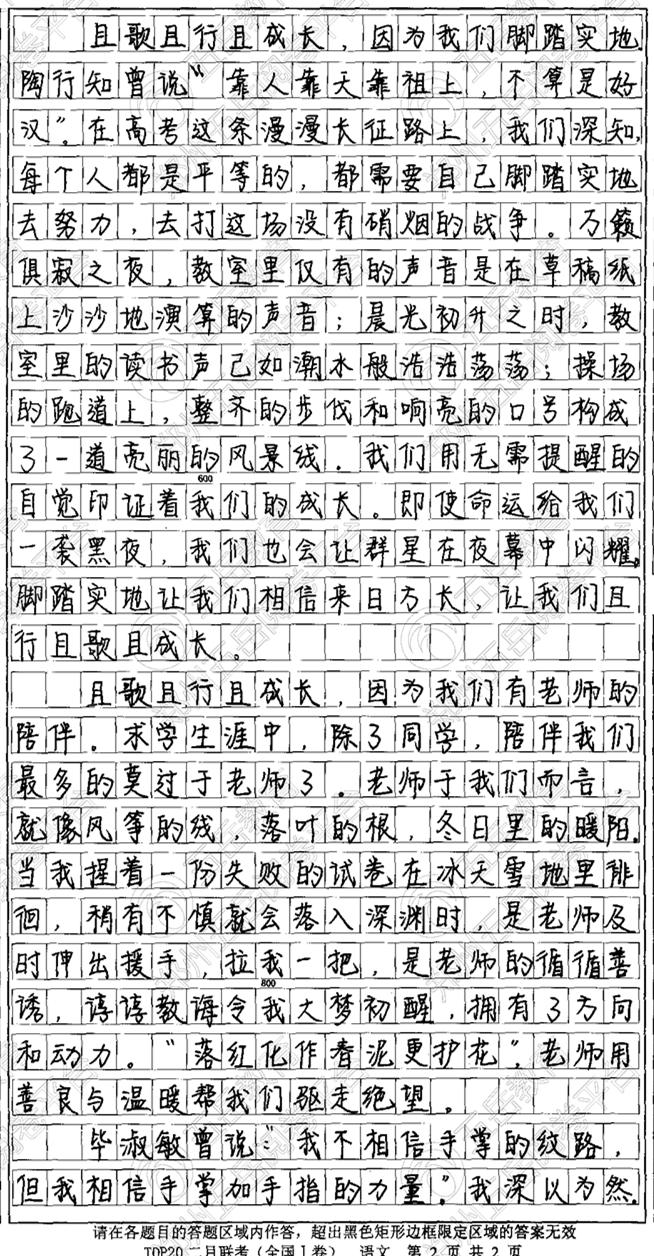 且歌且行且成长，因为我们脚踏实地.
陶行知曾说“靠人靠天靠祖上，不算是好
汉”.在高考这条漫漫长征路上，我们深知,
每个人都是平等的，都需要自己脚踏实地
去努力，去打这场没有硝烟的战争。万籁
俱寂之夜，教室里仅有的声音是在草稿纸
上沙沙地演算的声音；晨光初升之时，教
室里的读书声已如潮水般浩浩荡荡；操场
的跑道上，整齐的步伐和响亮的口号构成
了一道亮丽的风景线．我们用无需提醒的
600
自觉印证着我们的成长。即使命运给我们
一袭黑夜，我们也会让群星在夜幕中闪耀。
脚踏实地让我们相信来日方长，让我们且
行且歌且成长。
且歌且行且成长，因为我们有老师的
陪伴。求学生涯中，除了同学，陪伴我们
最多的莫过于老师了．老师于我们而言，
就像风筝的线，落叶的根，冬日里的暖阳.
当我捏着一份失败的试卷在冰天雪地里徘
徊，稍有不慎就会落入深渊时，是老师及
时伸出援手，拉我一把，是老师的循循善
800
诱，谆谆教诲令我大梦初醒，拥有了方向
和动力。“落红化作春泥更护花”．老师用
善良与温暖帮我们驱走绝望．
毕淑敏曾说：“我不相信手掌的纹路，
但我相信手掌加手指的力量”.我深以为然.
请在各题目的答题区域内作答，超出黑色矩形边框限定区域的答案无效
TOP20 二月联考（全国Ⅰ卷） 语文 第 2 页 共 2 页